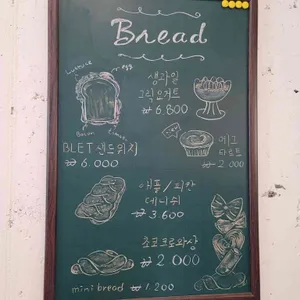 Bread
Lettuce
egg
Bacon
생과일
그릭요거트
₩ 6.800
BLET 샌드위치
₩ 6.000
에그
타르트
₩ 2.000
애플/피칸
데니쉬
₩ 3.600
초코크로와상
₩ 2.000
mini bread ₩ 1.200